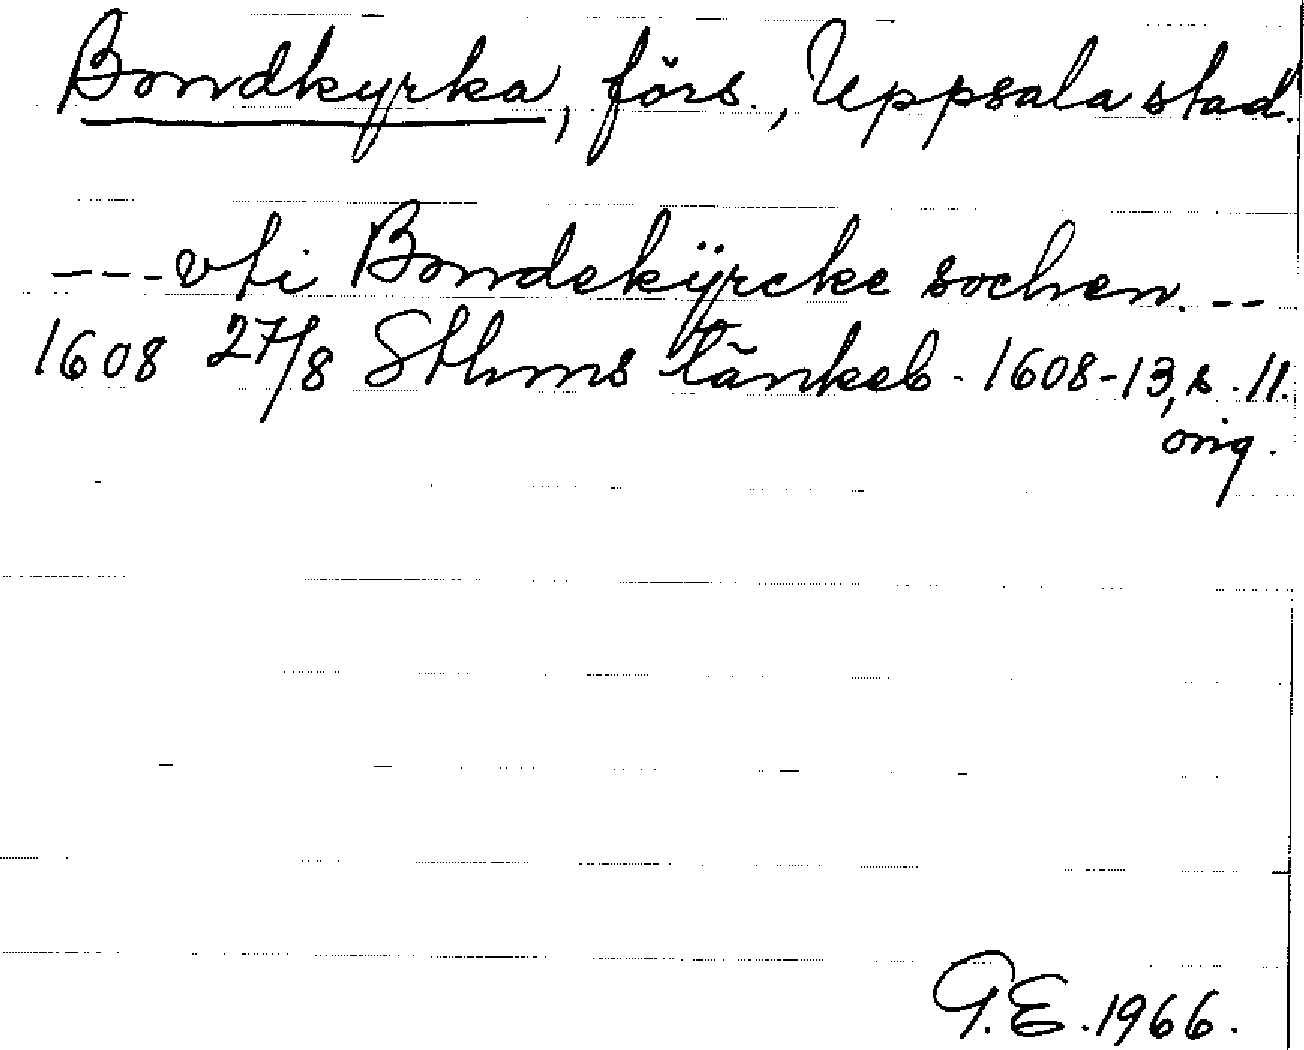 Bondkyrka, förs., Uppsala stad.
--- vti Bondekÿrcke sochen. --
1608 27/8 Sthms tänkeb. 1608-13, s. 11.
orig.
G.E. 1966.